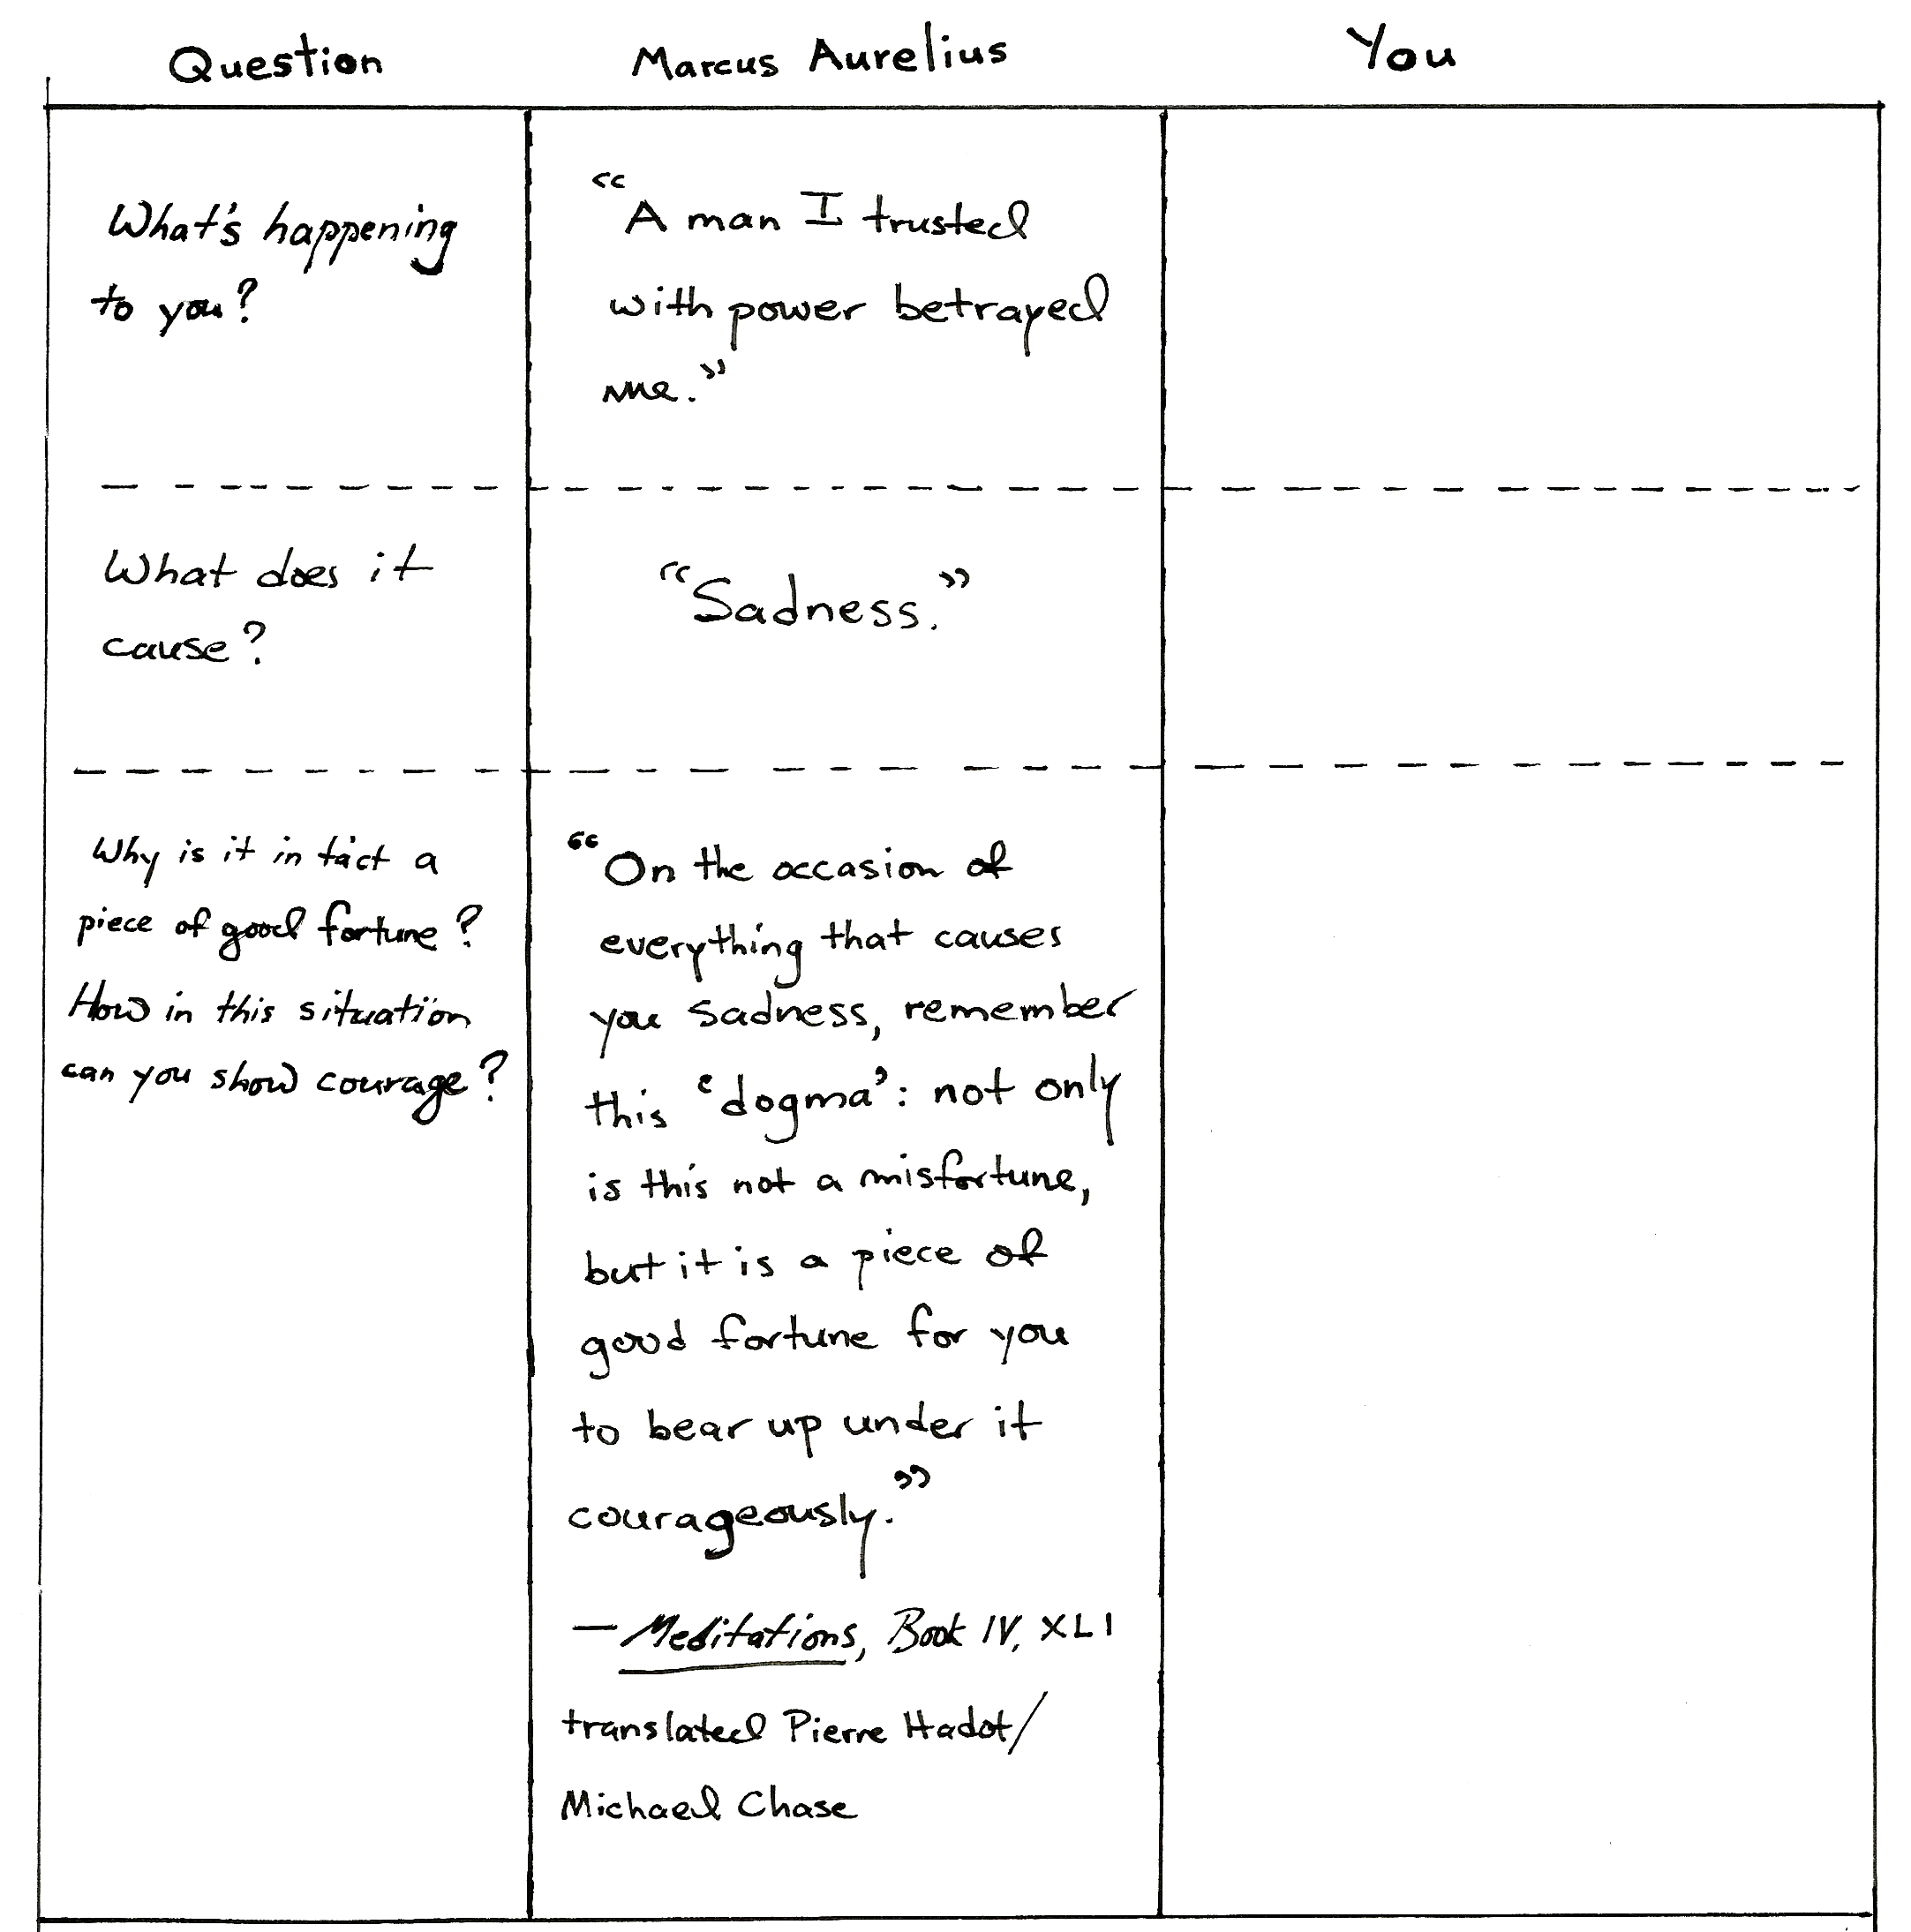 Question Marcus Aurelius You
What's happening
to you?
"A man I trusted
with power betrayed
me."
What does it
cause?
"Sadness."
Why is it in fact a
piece of good fortune?
How in this situation
can you show courage?
"On the occasion of
everything that causes
you sadness, remember
this 'dogma': not only
is this not a misfortune,
but it is a piece of
good fortune for you
to bear up under it
courageously."
— Meditations, Book IV, XLI
translated Pierre Hadot/
Michael Chase